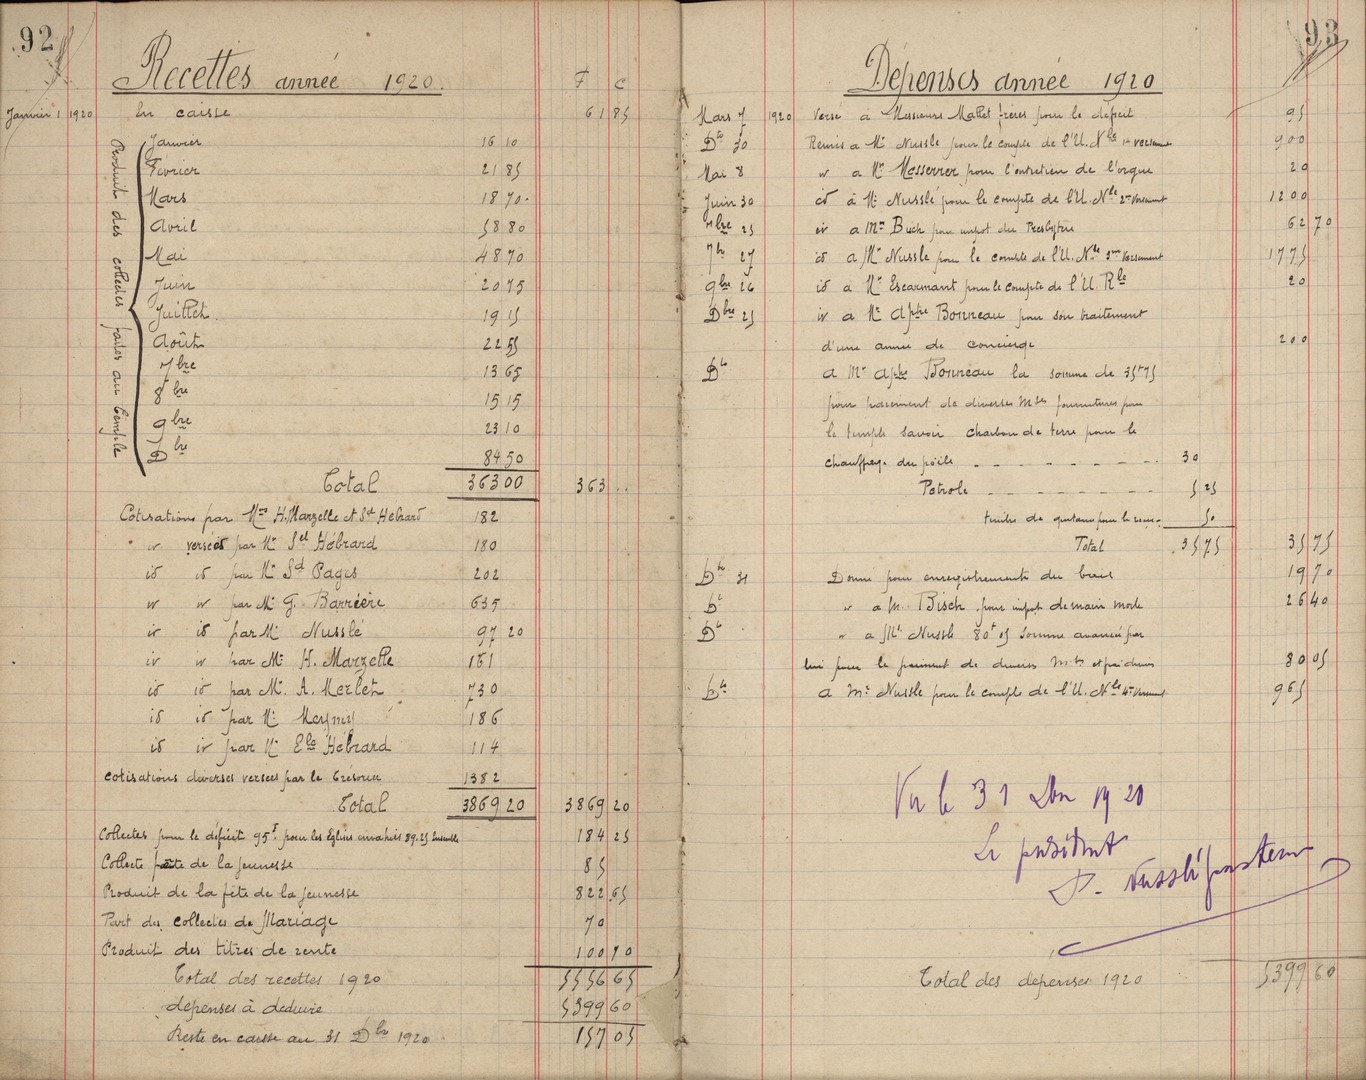 92
Recettes année 1920.
F C
Janvier 1 1920 En caisse 61 85
Produit des collectes faites au Temple
Janvier 16 10
Fevrier 21 85
Mars 18 70
Avril 58 80
Mai 48 70
Juin 20 75
Juillet 19 15
Août 22 55
7bre 13 65
8bre 15 15
9bre 23 10
Dbre 84 50
Total 363 00 363 ..
Cotisations par Mrs H. Marzelle et Sel Hebrard 182
id versées par Mr Sel Hébrard 180
id id par Mr Sd Pages 202
id id par Mr G. Barrière 635
id id par Mr Nusslé 97 20
id id par Mr H. Marzelle 161
id id par Mr A. Merlet 730
id id par Mr Meymy 186
id id par Mr Ele Hébrard 114
cotisations diverses versées par le Trésorier 1382
Total 3869 20 3869 20
Collectes pour le déficit 95f. pour les Eglises envahies 89.25 Ensemble 184 25
Collecte fête de la jeunesse 85
Produit de la fête de la jeunesse 822 65
Part des collectes de Mariage 70
Produit des titres de rente 100 70
Total des recettes 1920 5556 65
depenses à deduire 5399 60
Reste en caisse au 31 Dbre 1920 157 05
93
Dépenses année 1920
Mars 7 1920 Versé a Messieurs Mallet frères pour le deficit 95
Dto 30 Remis a Mr Nusslé pour le compte de l'U. Nle 1er versement 900
Mai 8 " a Mr Messerrer pour l'entretien de l'orgue 20
Juin 30 id à Mr Nusslé pour le compte de l'U. Nle 2e versement 1200
7bre 25 id a Mr Bisch pour impot du Presbytère 62 70
7bre 27 id a Mr Nusslé pour le compte de l'U. Nle 3me versement 1775
9bre 26 id a Mr Escarmant pour le compte de l'U. Rle 20
Dbre 25 id a Mr Aphse Bonneau pour son traitement
d'une année de concierge 200
Dto a Mr Aphse Bonneau la somme de 35f75
pour paiement de diverses mses fournitures pour
le temple savoir charbon de terre pour le
chauffage du poële 30
Petrole 5 25
timbre de quittance pour le 50
Total 35 75 35 75
Dbre 31 Donné pour enregistrement du bail 19 70
Dto " a M. Bisch pour impot de main morte 26 40
Dto " a Mr Nusslé 80f05 somme avancée par
lui pour le paiment de diverses 80 05
Dto a Mr Nusslé pour le compte de l'U. Nle 4e versement 965
Vu le 31 Dbre 1920
Le président
P. Nusslé pasteur
Total des depenses 1920 5399 60